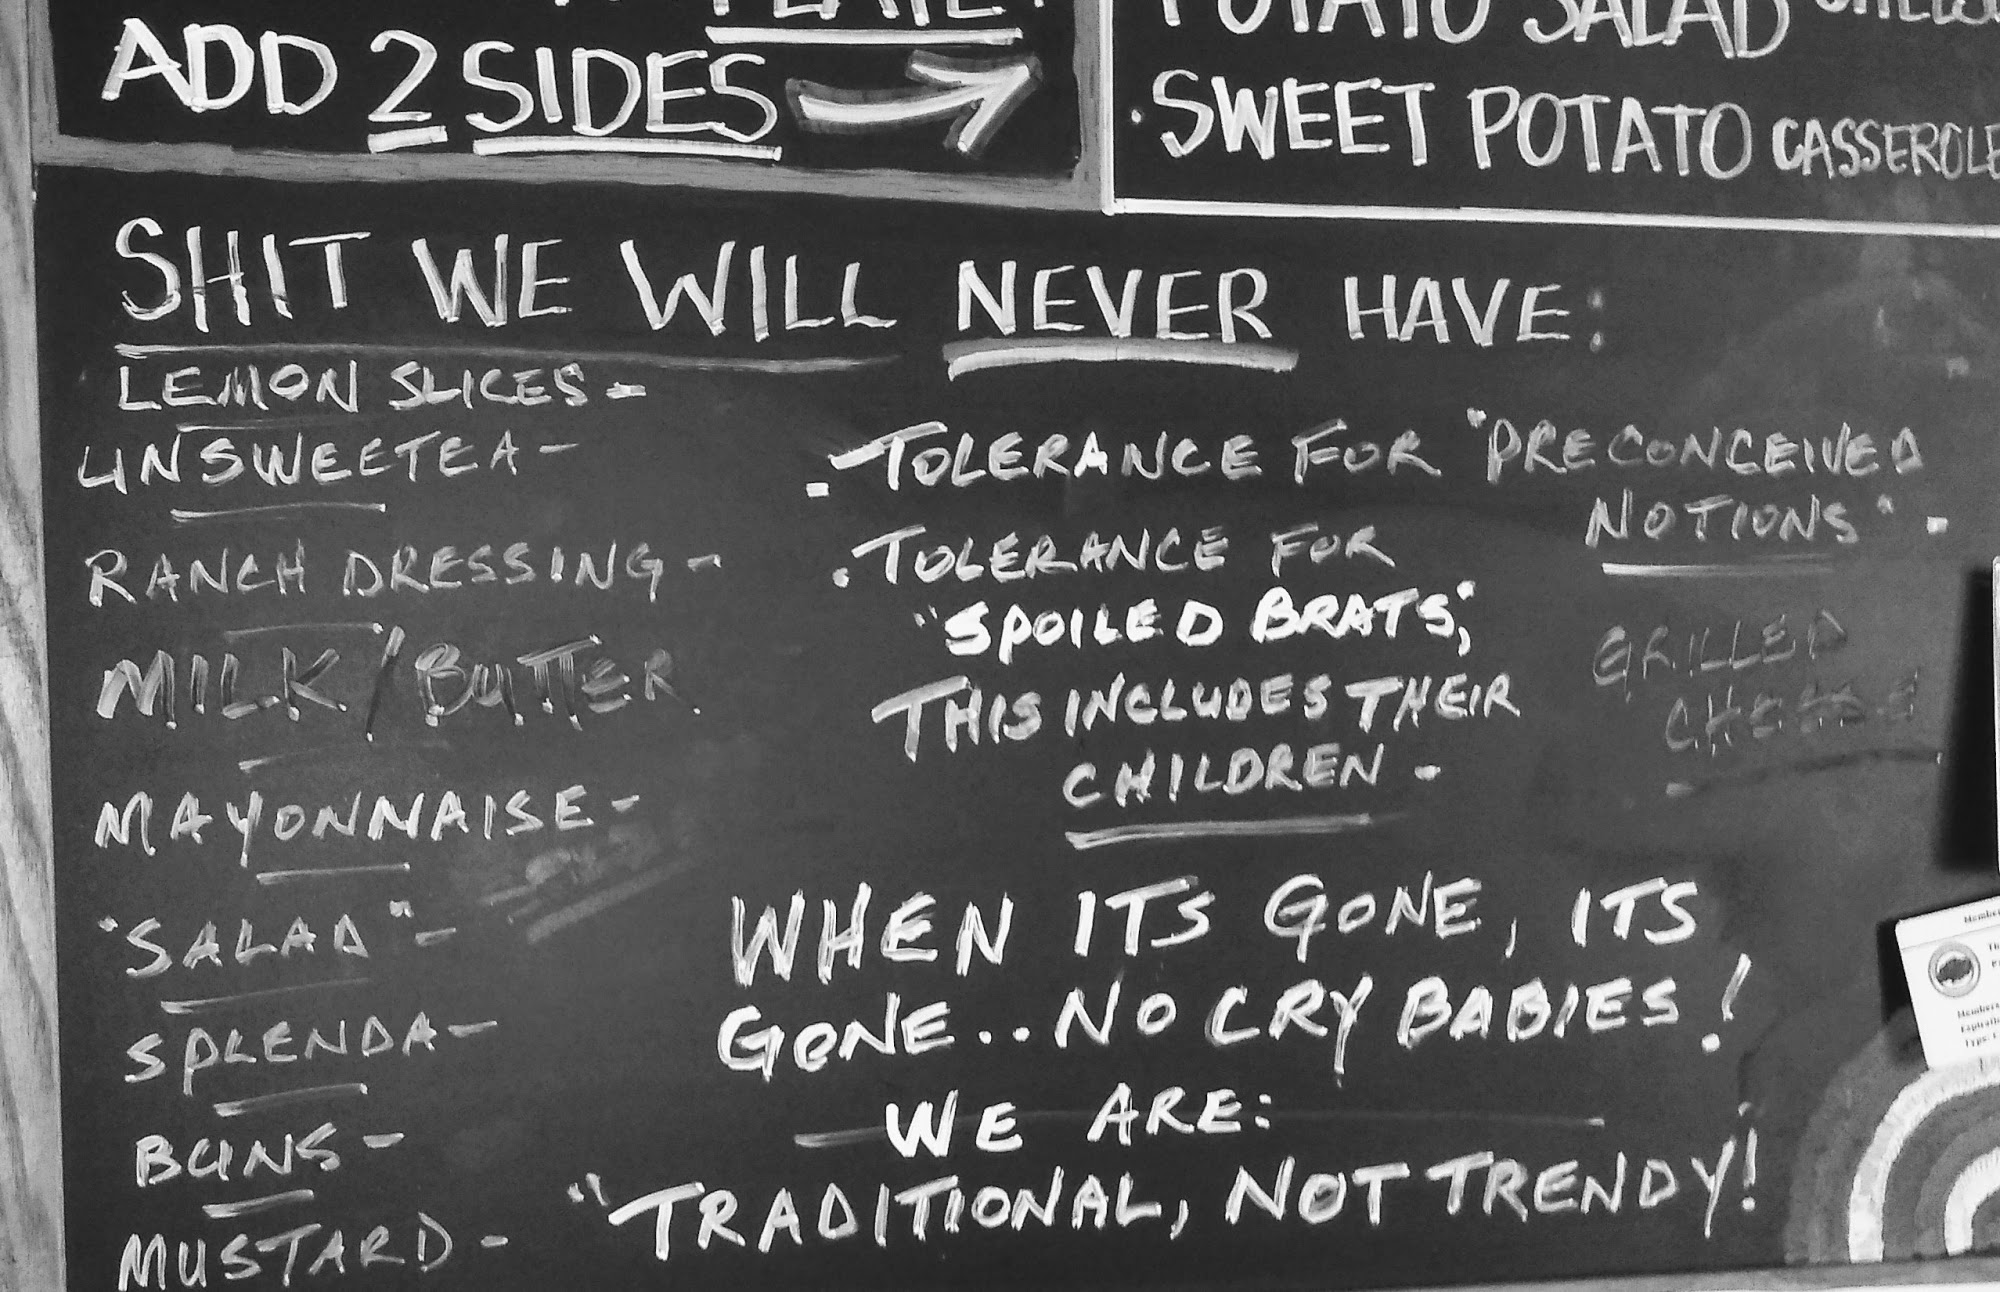 PLATE
ADD 2 SIDES
POTATO SALAD
· SWEET POTATO CASSEROLE
SHIT WE WILL NEVER HAVE:
LEMON SLICES -
UNSWEETEA -
RANCH DRESSING -
MILK / BUTTER
MAYONNAISE -
"SALAD" -
SPLENDA -
BUNS -
MUSTARD -
. TOLERANCE FOR "PRECONCEIVED
NOTIONS" .
. TOLERANCE FOR
"SPOILED BRATS,"
THIS INCLUDES THEIR
CHILDREN -
GRILLED
CHEESE
WHEN ITS GONE, ITS
GONE.. NO CRY BABIES!
WE ARE:
"TRADITIONAL, NOT TRENDY!